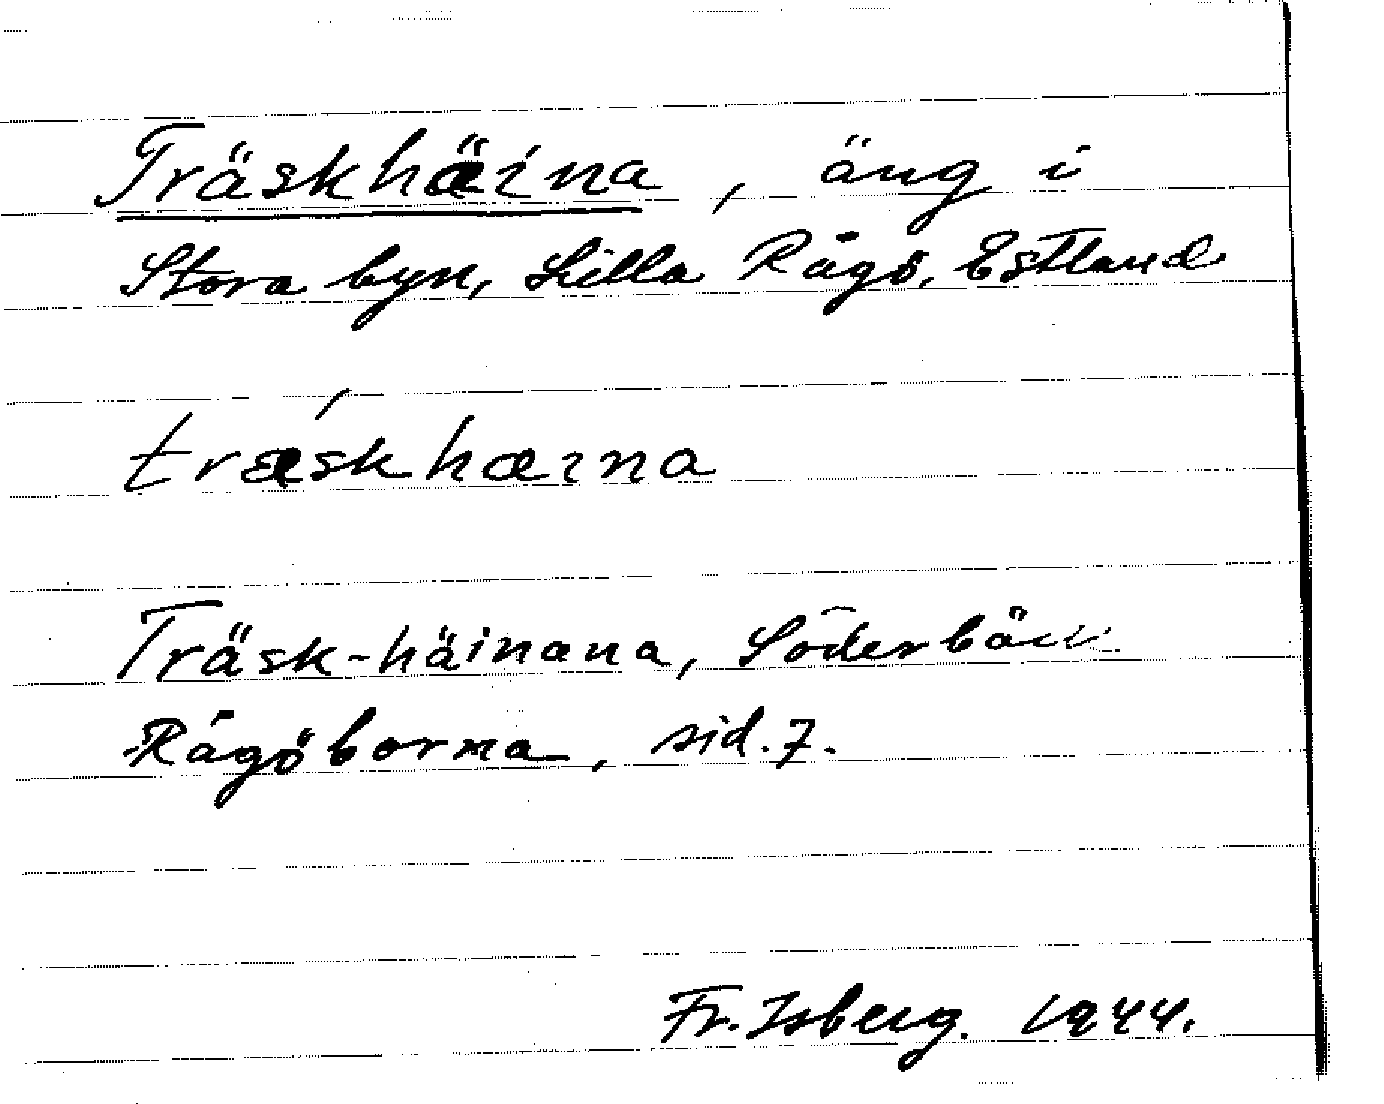 Träskhäina, äng i
Stora byn, Lilla Rågö, Estland
træskhæına
Träsk-häinana, Söderbäck
Rågöborna, sid. 7.
Fr. Isberg. 1944.